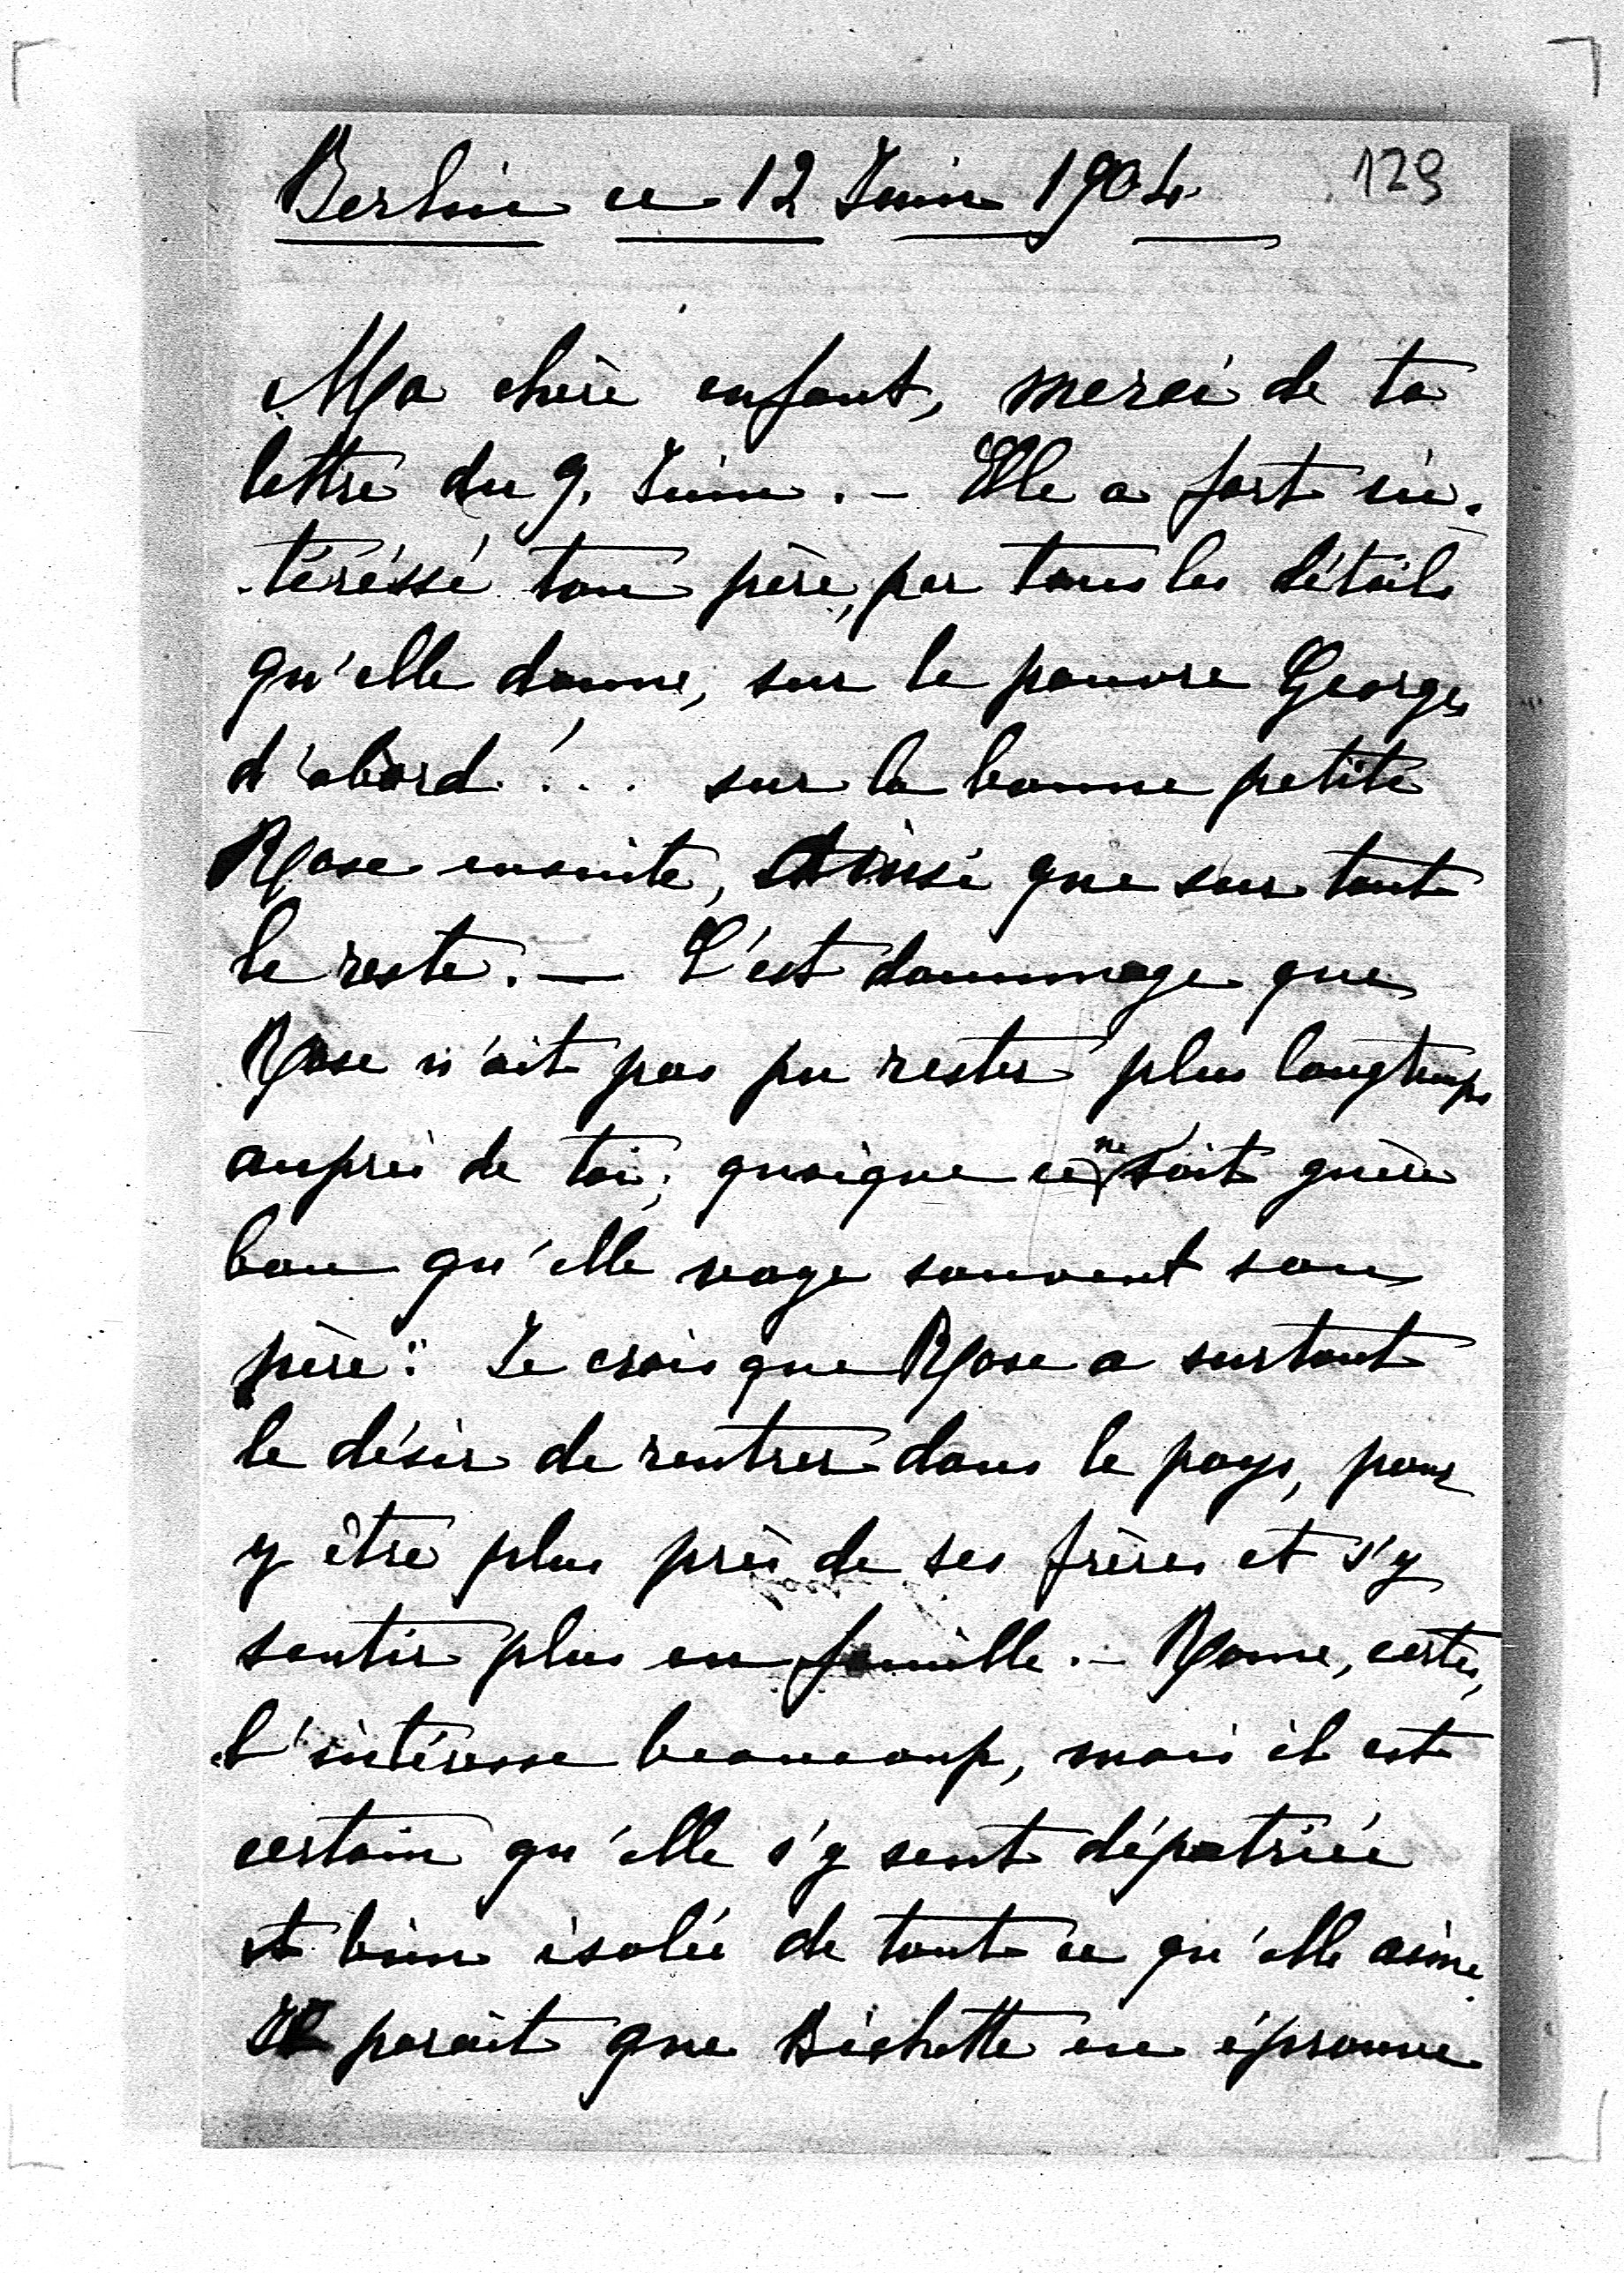 Berlin ce 12 Juin 1904 129
Ma chère enfant, merci de ta
lettre du 9. Juin. - Elle a fort in-
-téréssé ton père, par tous les détails
qu'elle donne, sur le pauvre Georges
d'abord!... sur la bonne petite
Rose ensuite, Ainsi que sur tout
le reste. — C'est dommage que
Rose n'ait pas pu rester plus longtemps
auprès de toi; quoique ce ne soit guère
bon qu'elle voye souvent son
père". Je crois que Rose a surtout
le désir de rentrer dans le pays, pour
y être plus près de ses frères et s'y
sentir plus en famille. - Rome, certes,
l'intéresse beaucoup, mais il est
certain qu'elle s'y sent dépatriée
et bien isolée de tout ce qu'elle aime.
Il parait que Bichette en éprouve